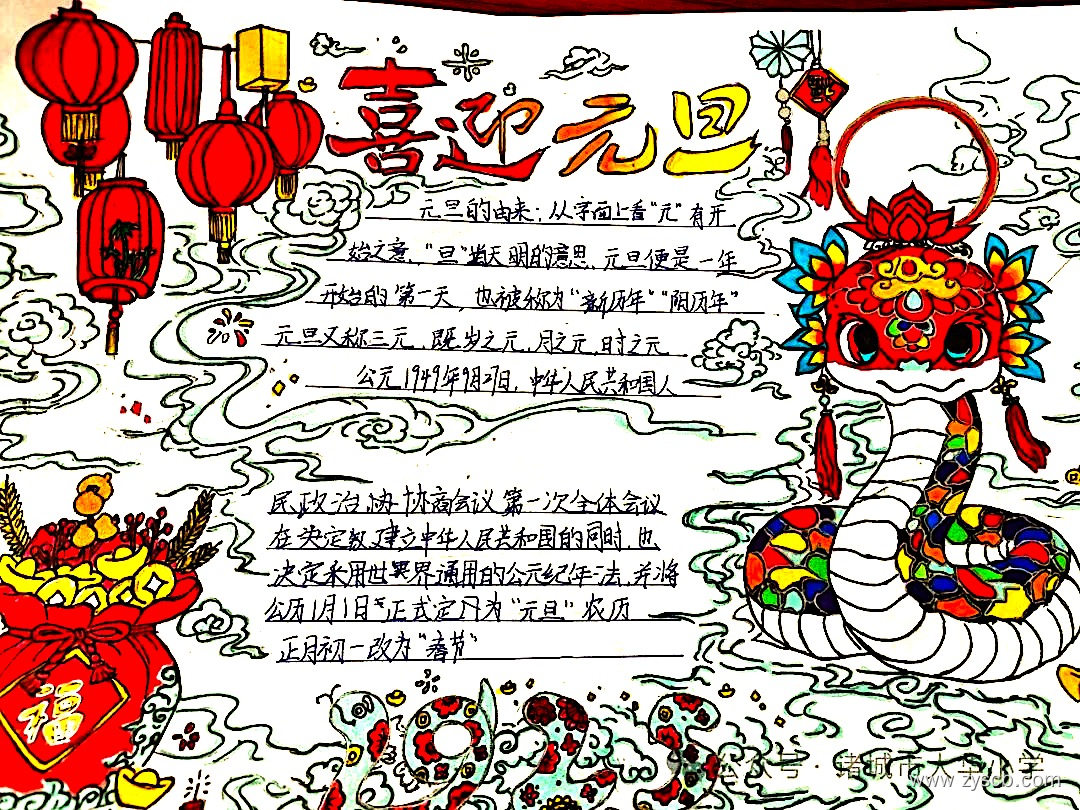 喜迎元旦
元旦的由来：从字面上看"元"有开
始之意，"旦"当天明的意思，元旦便是一年
开始的第一天，也被称为"新历年""阳历年"
元旦又称三元，既岁之元，月之元，时之元
公元1949年9月27日，中华人民共和国人
民政治协协商会议第一次全体会议
在决定教建立中华人民共和国的同时，也
决定采用世界通用的公元纪年法，并将
公历1月1日正式定为"元旦"农历
正月初一改为"春节"
福
2025
公众号·诸城市大
小学
www.zyscb.com